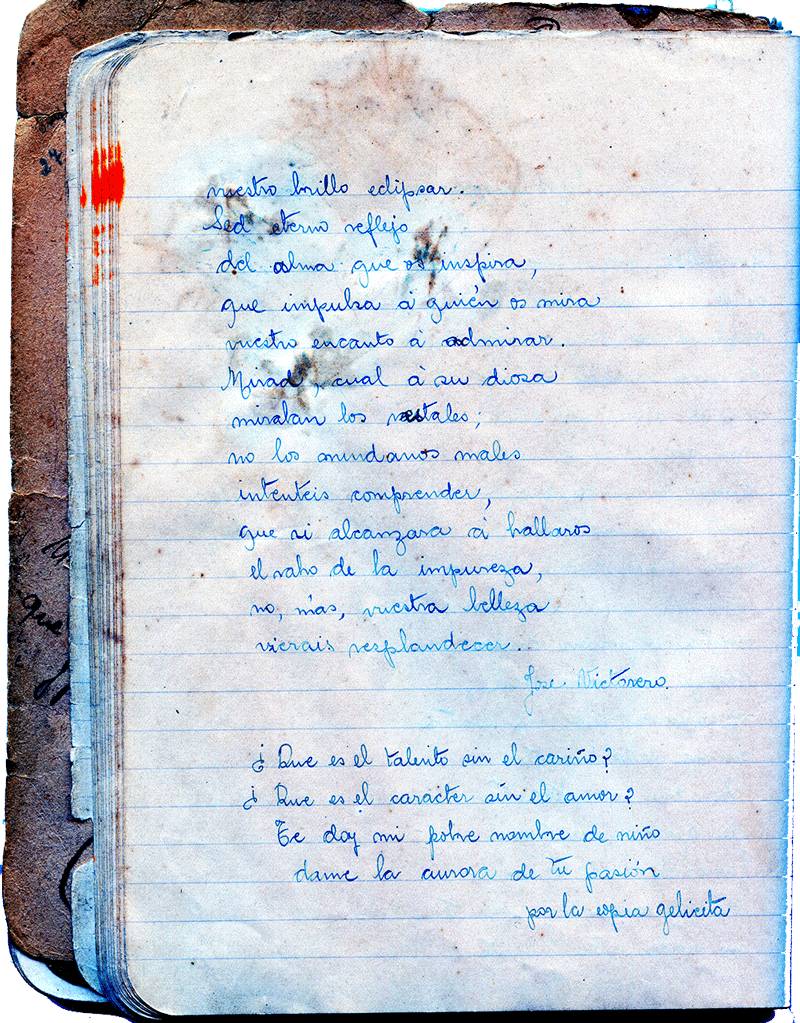 vuestro brillo eclipsar.
Sed eterno reflejo
del alma que os inspira,
que impulsa á quién os mira
vuestro encanto á admirar.
Mirad, cual á su diosa
miraban los vestales;
no los mundanos males
intentéis comprender,
que si alcanzara á hallaros
el vaho de la impureza,
no, más, vuestra belleza
vierais resplandecer..
Jose Victorero.
¿Que es el talento sin el cariño?
¿Que es el caracter sin el amor?
Te doy mi pobre nombre de niño
dame la aurora de tu pasión
por la copia gelicita
24
que